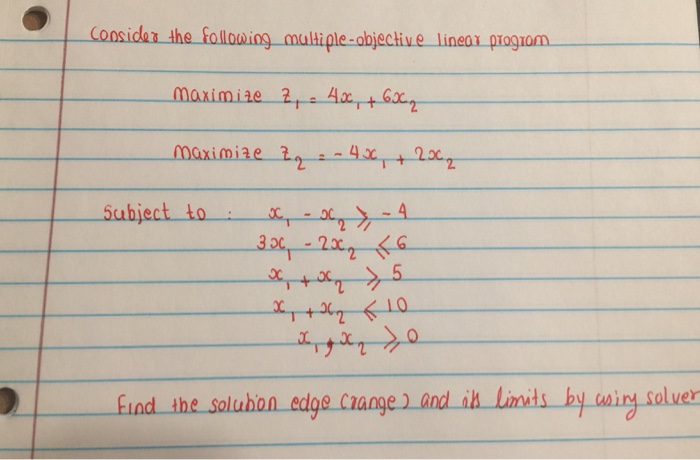 Consider the following multiple-objective linear program
maximize z₁ = 4x₁ + 6x₂
maximize z₂ = -4x₁ + 2x₂
Subject to : x₁ - x₂ ⩾ -4
3x₁ - 2x₂ ⩽ 6
x₁ + x₂ ⩾ 5
x₁ + x₂ ⩽ 10
x₁, x₂ ⩾ 0
Find the solution edge (range) and its limits by using solver